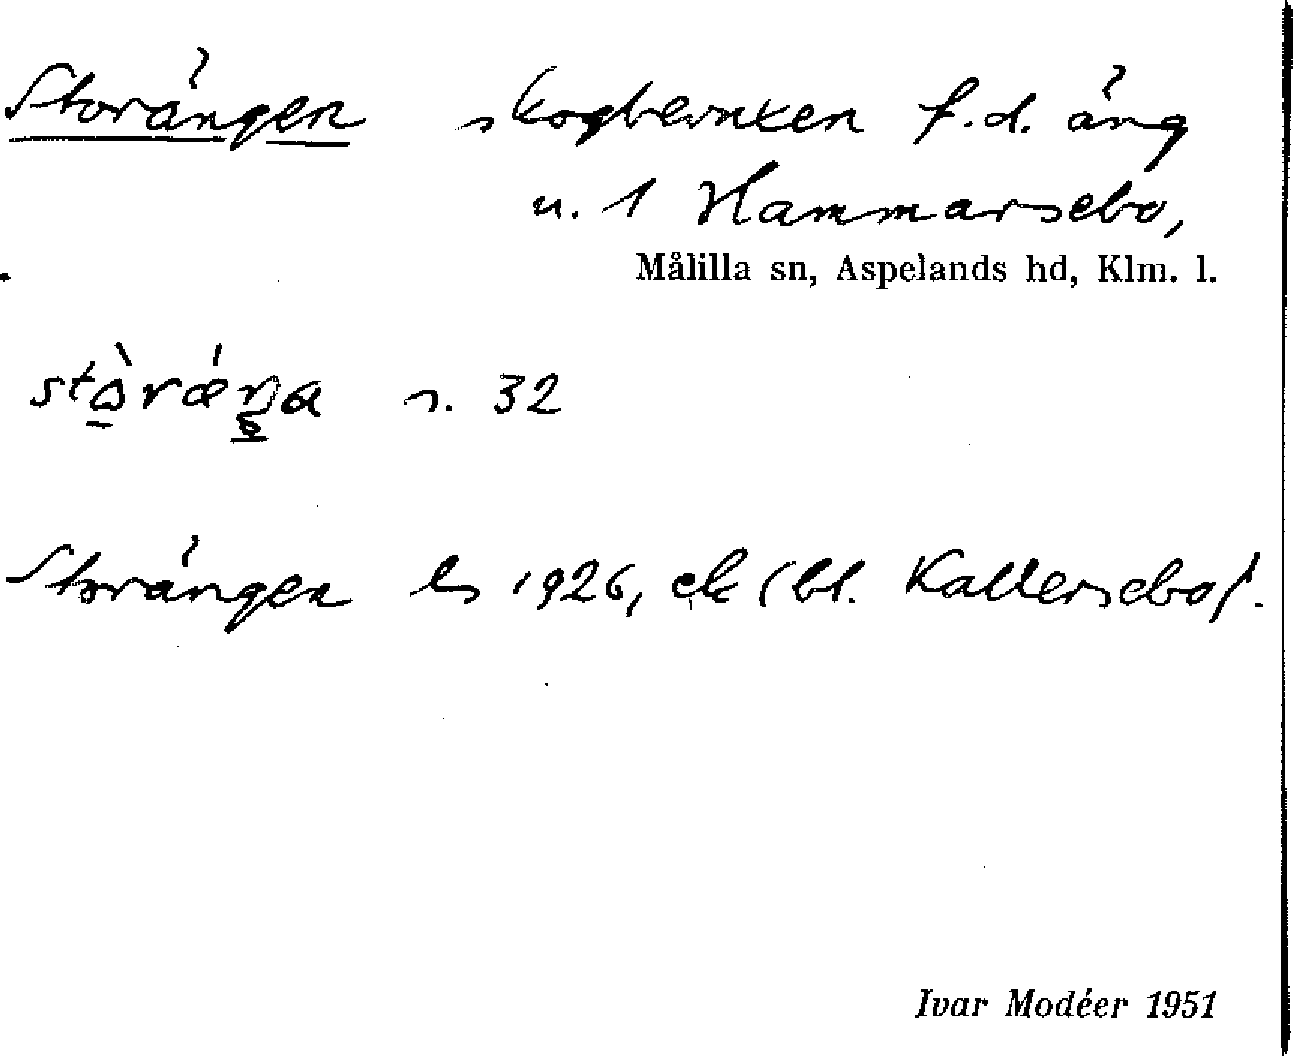 Storängen skogbevuxen f.d. äng
u. 1 Hammarsebo,
Målilla sn, Aspelands hd, Klm. l.
s. 32
Storängen ls 1926, ek (bl. Kallersebo).
Ivar Modéer 1951